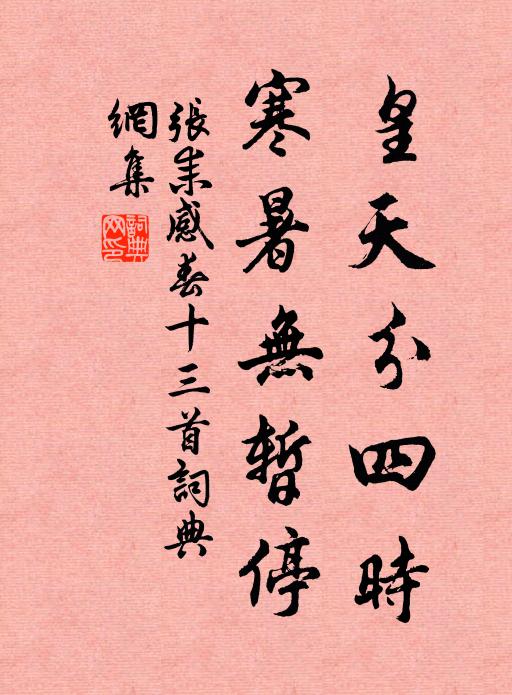 皇天分四時
寒暑無暫停
張耒感春十三首詞典
網集
詞典網印